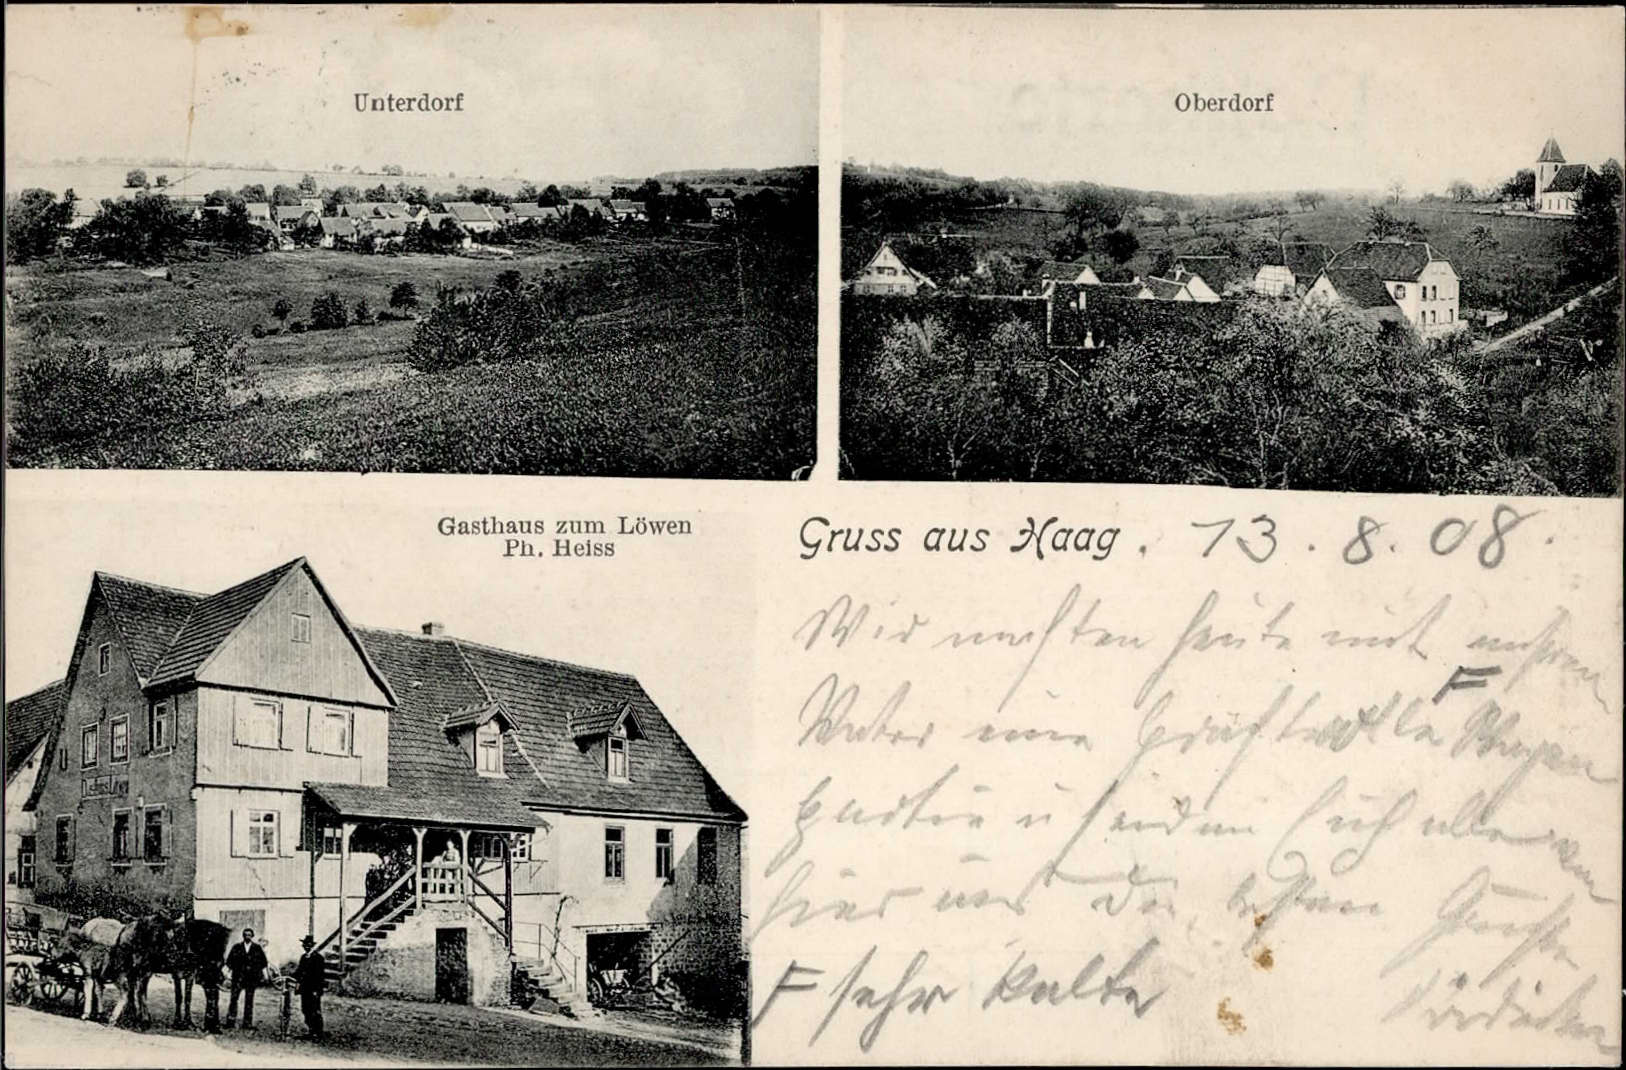 Unterdorf
Oberdorf
Gasthaus zum Löwen
Ph. Heiss
Gruss aus Haag. 13.8.08.
Wir machten heute mit unsren
F
Vater eine Wagen
partie u senden Euch alle von
hier aus die besten Grüße
F sehr kalte